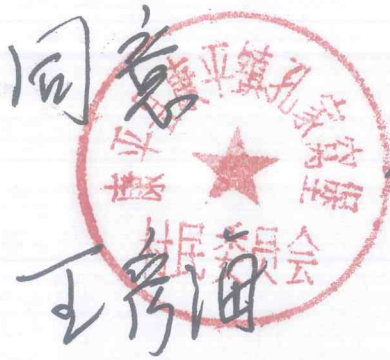 同意
康平县康平镇孔家窝堡
村民委员会
王彦海